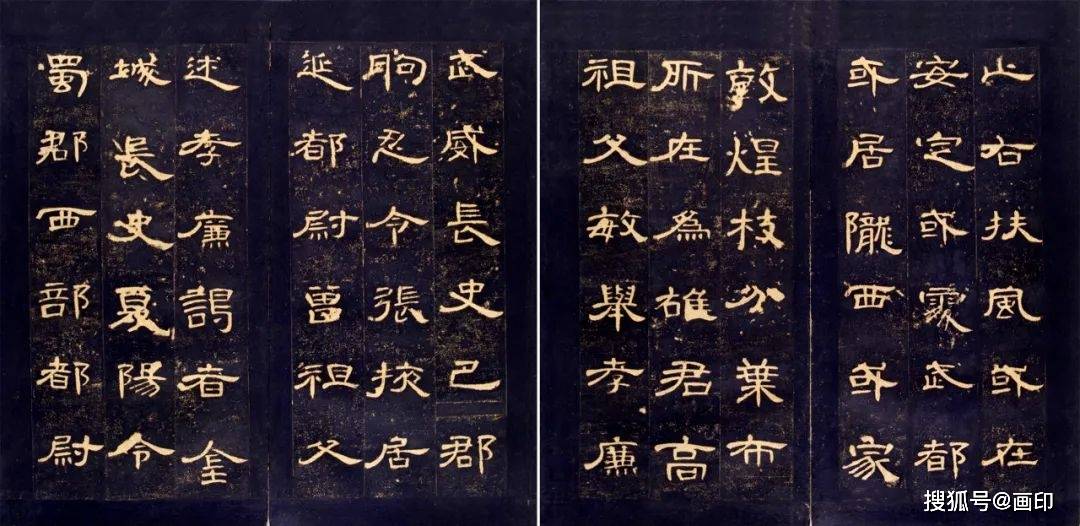 止右扶風或在
安定或處武都
或居隴西或家
敦煌枝分葉布
所在為雄君高
祖父敏舉孝廉
武威長史巴郡
朐忍令張掖居
延都尉曾祖父
述孝廉謁者金
城長史夏陽令
蜀郡西部都尉
搜狐号@画印